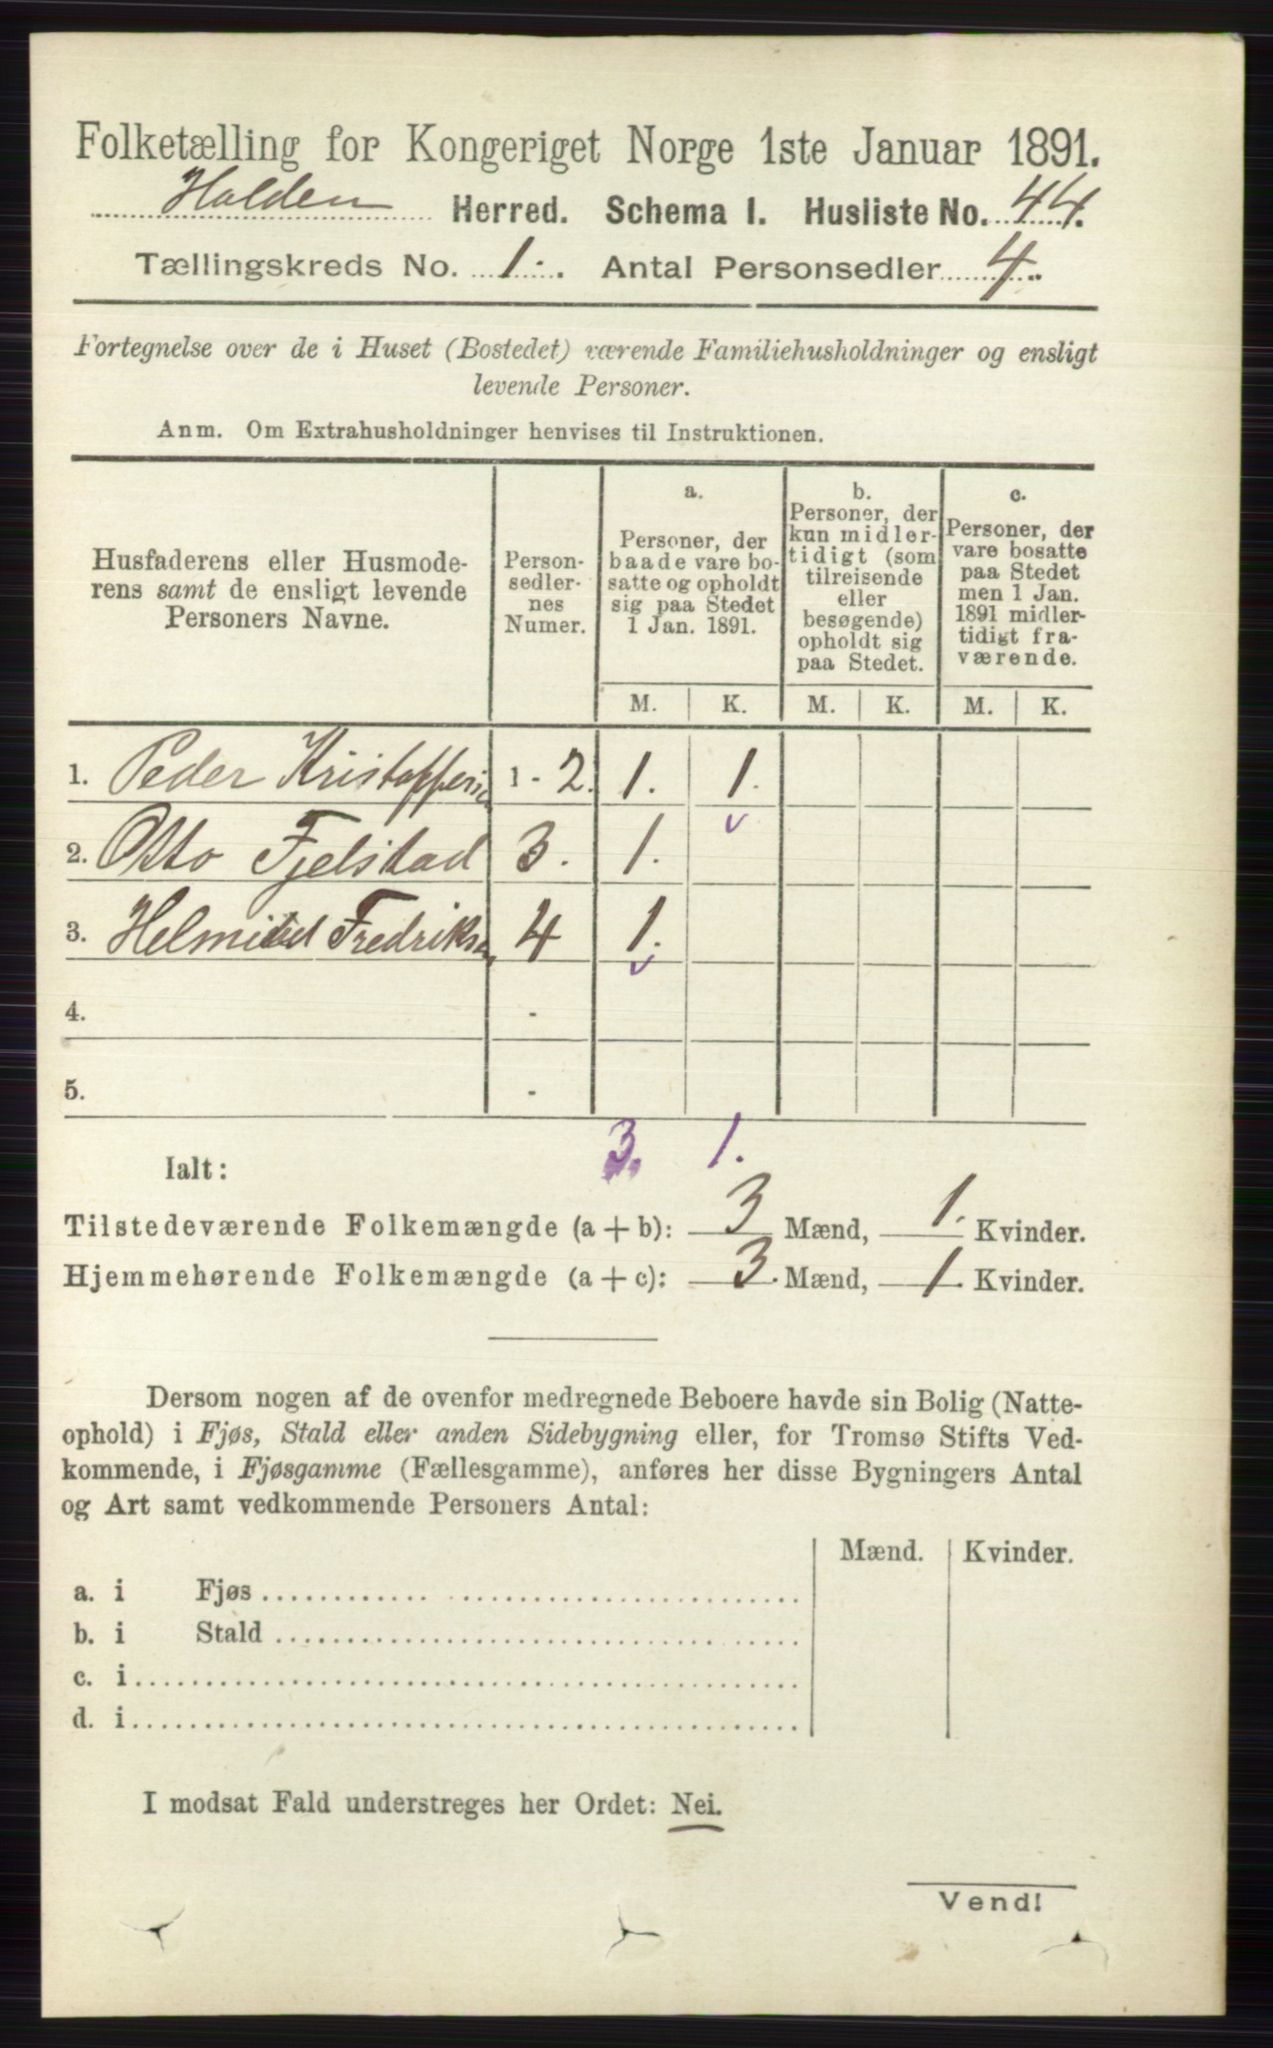 Folketælling for Kongeriget Norge 1ste Januar 1891.
Holden Herred. Schema I. Husliste No. 44.
Tællingskreds No. 1. Antal Personsedler 4.
Fortegnelse over de i Huset (Bostedet) værende Familiehusholdninger og ensligt
levende Personer.
Anm. Om Extrahusholdninger henvises til Instruktionen.
Husfaderens eller Husmode-
rens samt de ensligt levende
Personers Navne.
Person-
sedler-
nes
Numer.
a.
Personer, der
baade vare bo-
satte og opholdt
sig paa Stedet
1 Jan. 1891.
b.
Personer, der
kun midler-
tidigt (som
tilreisende
eller
besøgende)
opholdt sig
paa Stedet.
c.
Personer, der
vare bosatte
paa Stedet
men 1 Jan.
1891 midler-
tidigt fra-
værende.
M. K. M. K. M. K.
1. Peder Kristoffersen 1 - 2. 1. 1.
2. Otto Fjelstad 3. 1.
3. Fredriksen 4 1.
4. -
5. -
3. 1.
Ialt:
Tilstedeværende Folkemængde (a + b): 3 Mænd, 1. Kvinder.
Hjemmehørende Folkemængde (a + c): 3. Mænd, 1. Kvinder.
Dersom nogen af de ovenfor medregnede Beboere havde sin Bolig (Natte-
ophold) i Fjøs, Stald eller anden Sidebygning eller, for Tromsø Stifts Ved-
kommende, i Fjøsgamme (Fællesgamme), anføres her disse Bygningers Antal
og Art samt vedkommende Personers Antal:
Mænd. Kvinder.
a. i Fjøs
b. i Stald
c. i
d. i
I modsat Fald understreges her Ordet: Nei.
Vend!